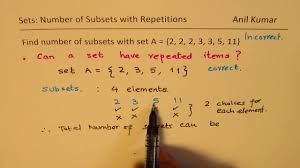 Sets: Number of Subsets with Repetitions Anil Kumar
Find number of subsets with set A = {2, 2, 2, 3, 3, 5, 11} Incorrect.
• Can a set have repeated items ?
set A = { 2, 3, 5, 11 } correct.
Subsets : 4 elements.
2 3 5 11
✓ ✓ ✓ } 2 choices for
x x x } each element.
∴ Total Number of subsets can be